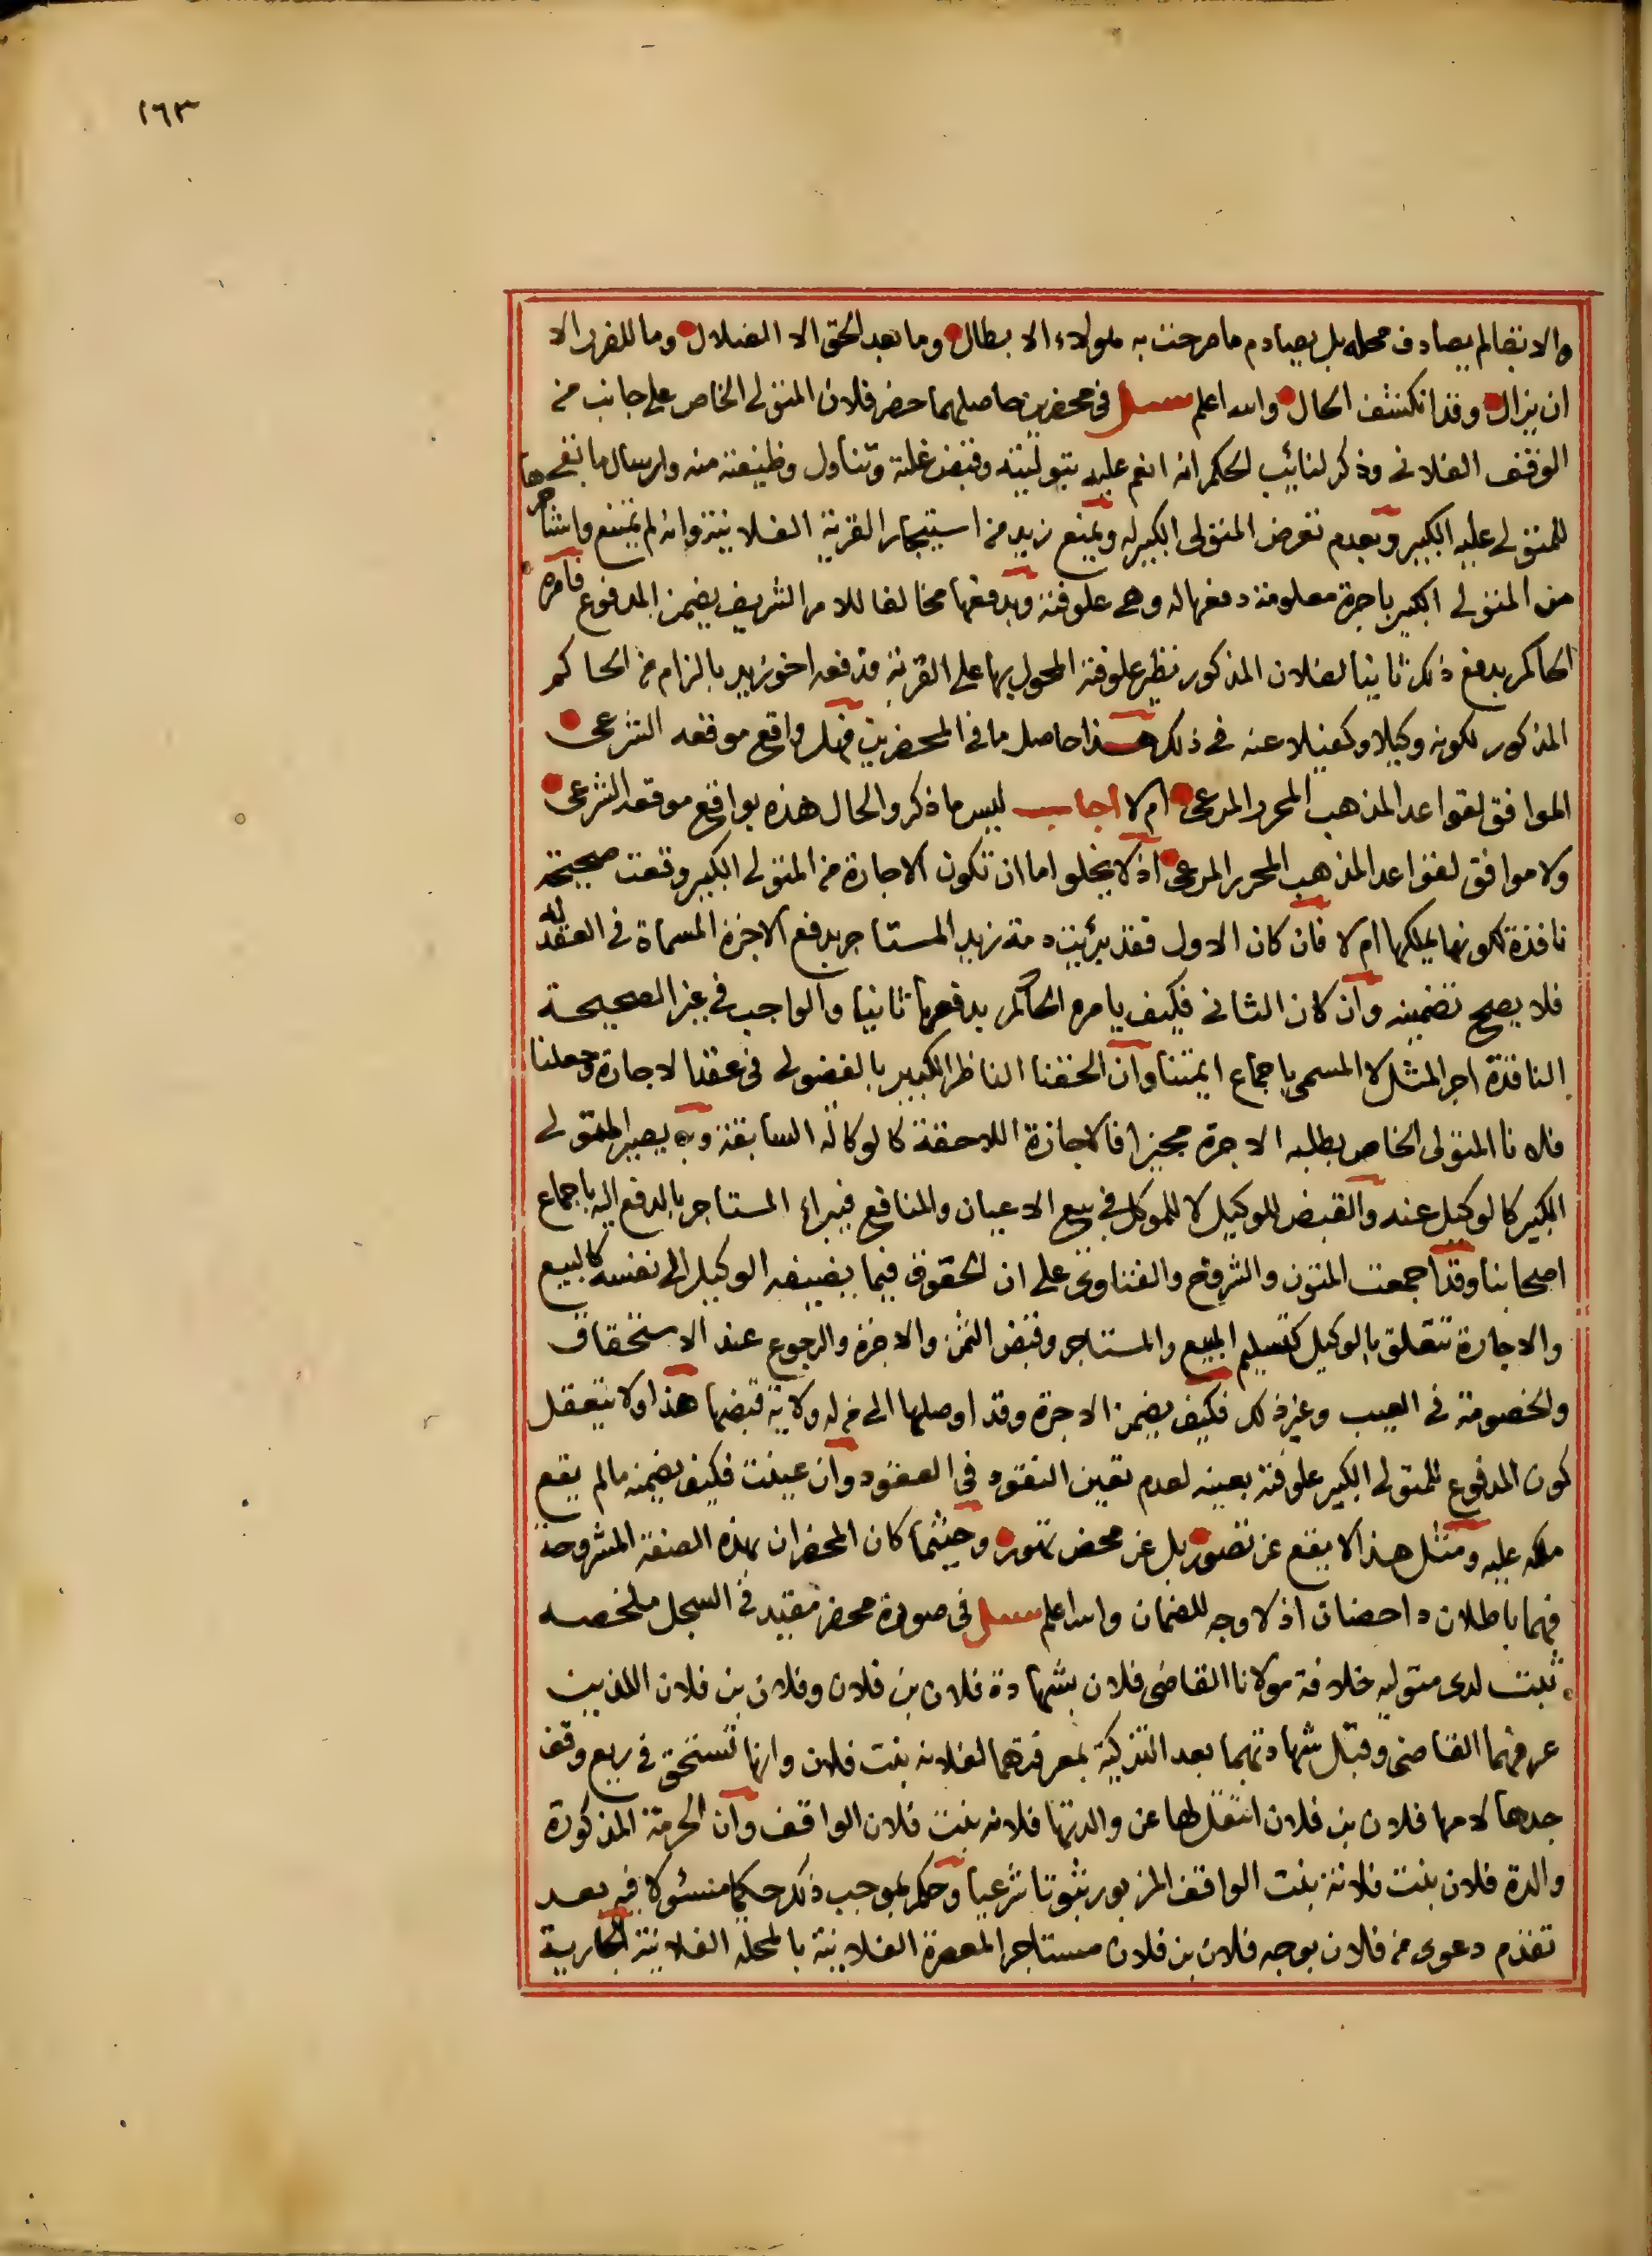 ١٦٣
والابقا لم يصادف محله بل يصادم ما صرحت به هولاء الابطال وما بعد الحق الا الضلال وما للضرر الا
ان يزال وقد انكشف الحال والله اعلم سئل في محضرين حاصلهما حضر فلان المتولى الخاص على جانب من
الوقف الفلانى وذكر لنايب الحكم انه انعم عليه بتوليته وقبض غلته وتناول وظيفته منه وارسال ما بقى
للمتولى عليه الكبير وبعدم تعرض المتولى الكبير له وبمنع زيد من استيجار القرية الفلانية وانه لم يمتنع واستاجرها
من المتولى الكبير باجرة معلومة دفعها له وهى علوفته وبدفعها مخالفا للامر الشريف يضمن المدفوع فامره
الحاكم بدفع ذلك ثانيا لفلان المذكور نظير علوفته المحول بها على القرية فدفعه اخو زيد بالزام من الحاكم
المذكور لكونه وكيلا وكفيلا عنه في ذلك هذا حاصل ما في المحضرين فهل واقع موقعه الشرعى
الموافق لقواعد المذهب المحرر المرعى ام لا اجاب ليس ما ذكر والحال هذه بواقع موقعه الشرعى
ولا موافق لقواعد المذهب المحرر المرعى اذ لا يخلو اما ان تكون الاجارة من المتولى الكبير وقعت صحيحة
نافذة لكونه يملكها ام لا فان كان الاول فقد برئت ذمة زيد المستاجر بدفع الاجرة المسماة في العقد له
فلا يصح تضمينه وان كان الثانى فكيف يامره الحاكم بدفعها ثانيا والواجب في غير الصحيحة
النافذة اجر المثل لا المسمى باجماع ايمتنا وان الحقنا الناظر الكبير بالفضولى في عقد الاجارة وجعلنا
فلانا المتولى الخاص بطلبه الاجرة مجيزا فالاجازة اللاحقة كالوكالة السابقة وبه يصير المتولى
الكبير كالوكيل عنه والقبض للوكيل لا للموكل في بيع الاعيان والمنافع فيبراء المستاجر بالدفع اليه باجماع
اصحابنا وقد اجمعت المتون والشروح والفتاوى على ان الحقوق فيما يضيفه الوكيل الى نفسه كالبيع
والاجارة تتعلق بالوكيل كتسليم المبيع والمستاجر وقبض الثمن والاجرة والرجوع عند الاستحقاق
والخصومة في العيب وغير ذلك فكيف يضمن الاجرة وقد اوصلها الى من له ولاية قبضها هذا ولا يتعقل
كون المدفوع للمتولى الكبير علوفته بعينه لعدم تعين النقود في العقود وان عينت فكيف يضمنه مالم يقع
ملكه عليه ومثل هذا لا يقع عن تصور بل عن محض تهور وحيثما كان المحضران بهذه الصفة المشروحة
فهما باطلان داحضان اذ لا وجه للضمان والله اعلم سئل في صورة محضر مقيد في السجل ملخصه
ثبت لدى متوليه خلافة مولانا القاضى فلان بشهادة فلان بن فلان وفلان بن فلان اللذين
عرفهما القاضى وقبل شهادتهما بعد التزكية بمعرفتهما لفلانه بنت فلان وانها تستحق في ريع وقف
جدها لامها فلان بن فلان انتقل لها عن والدتها فلانه بنت فلان الواقف وان الحرمة المذكورة
والدة فلان بنت فلانة بنت الواقف المزبور ثبوتا شرعيا وحكم بموجب ذلك حكما مسئولا فيه بعد
تقدم دعوى من فلان بوجه فلان بن فلان مستاجر المعصرة الفلانية بالمحلة الفلانية الجارية